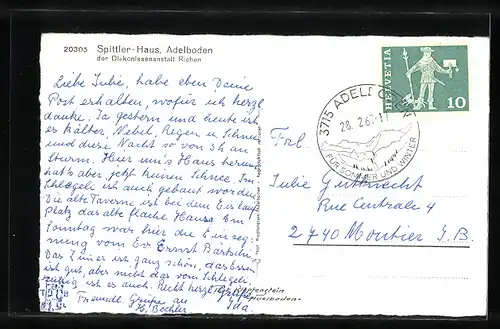 20305 Spittler-Haus, Adelboden
der Diakonissenanstalt Riehen
Liebe Julie, habe eben Deine
Post erhalten, wofür ich herzl
danke. Ja gestern und heute ist
es kälter, Nebel, Regen u. Schnee
und diese Nacht so von 3 h an
Sturm. Hier um's Haus herum
hat's aber jetzt keinen Schnee. Im
Schlegeli ist auch gebaut worden
Die alte Taverne ist bei dem Eislauf
Platz das alte flache Haus. Am
Sonntag war hier die Einseg-
nung vom Ev Ernst Bärtschi
Das Zimmer ist ganz schön, das Essen
ist gut, aber nicht das vom Schlegeli,
ist es auch. Recht herzl. Grüße
Freundl. Grüsse an Ida
H. Bechler
HELVETIA
10
3715 ADELBODEN
28. 2. 67
FÜR SOMMER UND WINTER
Frl.
Julie Gutknecht
Rue Centrale 4
2740 Moutier J.B.
Adelboden